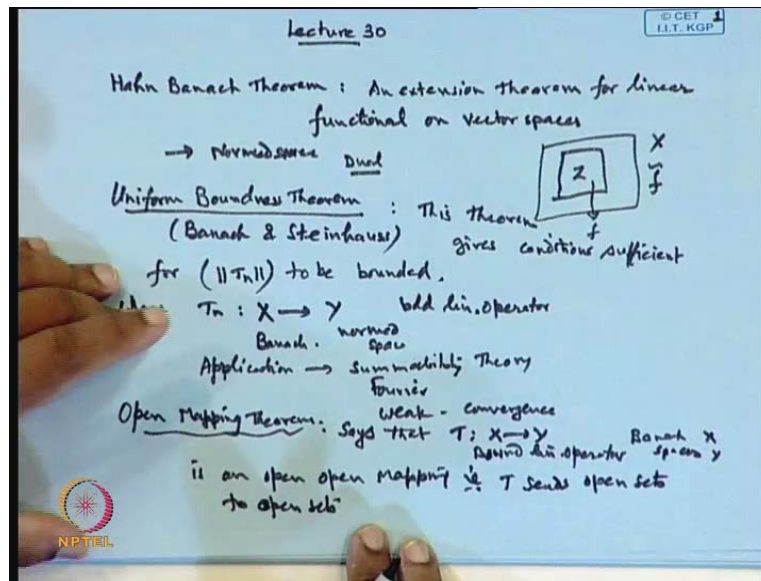 Lecture 30
© CET
I.I.T. KGP
1
Hahn Banach Theorem : An extension theorem for linear
functional on vector spaces
→ Normed space Dual
X
Z
f̃
f
Uniform Boundness Theorem : This theorem
(Banach & Steinhauss) gives conditions sufficient
for (||Tn||) to be bounded.
Tn : X → Y bdd lin. operator
Banach. normed space
Application → Summability Theory
Fourier
weak - convergence
Open Mapping Theorem : Says that T : X → Y Banach X
Bound lin operator spaces Y
is an open open mapping ie T sends open sets
to open sets
NPTEL